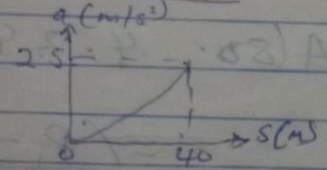 a (m/s²)
2.5
0 40 S(m)